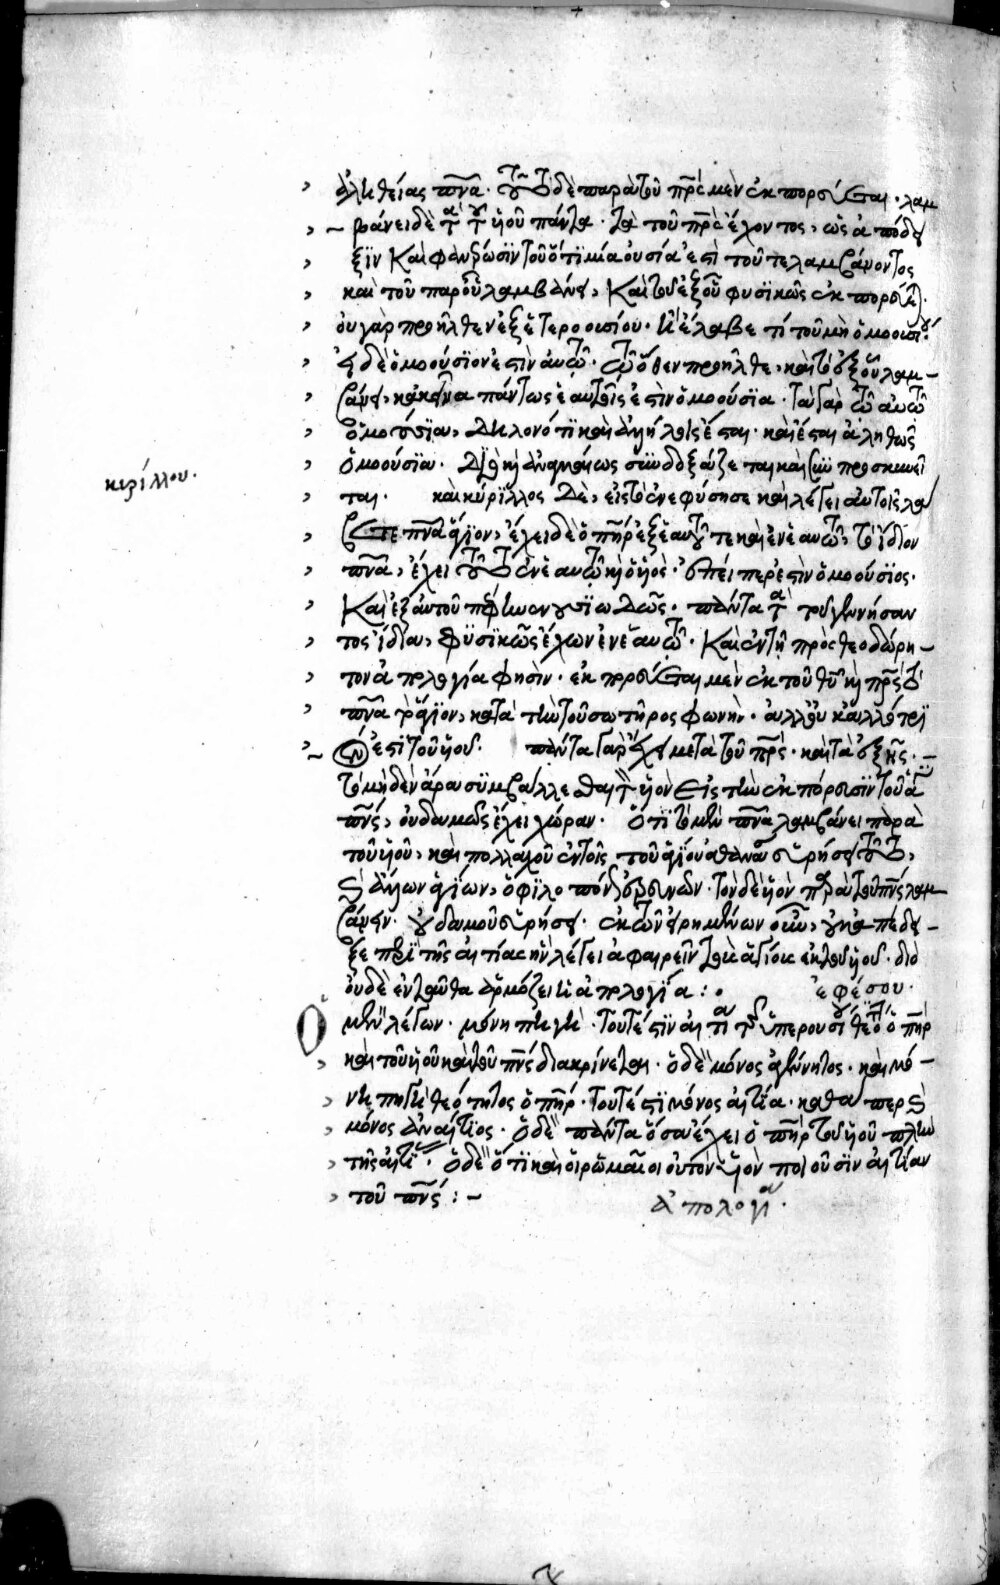 ἀληθείας πνα. τοῦτο δὲ παρὰ τοῦ πρς μὲν ἐκπορεύεται. λαμ
βάνει δὲ τὰ τοῦ υἱοῦ πάντα. τὰ τοῦ πρς ἔχοντος, ὡς ἀπόδει
ξιν καὶ φανέρωσιν τοῦ ὅτι μία οὐσία ἐστὶ τοῦ τε λαμβάνοντος
καὶ τοῦ παρ' οὗ λαμβάνει, καὶ τοῦ ἐξ οὗ φυσικῶς ἐκπορεύεται.
οὐ γὰρ προῆλθεν ἐξ ἑτεροουσίου. ἢ ἔλαβε τί τοῦ μὴ ὁμοουσίου.
εἰ δὲ ὁμοούσιον ἐστὶν αὐτῶ. τῶ ὅθεν προῆλθε, καὶ τὸ ἐξ οὗ λαμ
βάνει, κἀκεῖνα πάντως ἑαυτοῖς ἐστὶν ὁμοούσια. τὰ γὰρ τῶ αὐτῶ
ὁμοούσια, δηλονότι καὶ ἀλλήλοις ἔσται. καὶ ἔσται ἀληθῶς
ὁμοούσια. διὸ καὶ ἀναγκαίως συνδοξάζεται καὶ συμπροσκυνεῖ
κυρίλλου.
ται. καὶ κύριλλος δὲ, εἰς τὸ ἐνεφύσησε καὶ λέγει αὐτοῖς λά
βετε πνα ἅγιον, ἔχει δὲ ὁ πηρ ἐξ ἑαυτοῦ τε καὶ ἐν ἑαυτῶ, τὸ ἴδιον
πνα, ἔχει τοῦτο ἐν ἑαυτῶ καὶ ὁ υἱός. ἐπείπερ ἐστὶν ὁμοούσιος.
καὶ ἐξ αὐτοῦ πέφηνεν οὐσιωδῶς. πάντα τὰ τοῦ γεννήσαν
τος ἴδια, φυσικῶς ἔχων ἐν ἑαυτῶ. καὶ ἐν τῆ πρὸς θεοδώρη
τον ἀπολογία φησὶν. ἐκπορεύεται μὲν ἐκ τοῦ θυ καὶ πρς τὸ
πνα τὸ ἅγιον, κατὰ τὴν τοῦ σωτῆρος φωνὴν. ἀλλ' οὐκ ἀλλότρι
όν ἐστι τοῦ υἱοῦ. πάντα γὰρ ἔχει μετὰ τοῦ πρς. καὶ τὰ ἑξῆς.
τὸ μηδὲν ἄρα συμβάλλεσθαι τὸν υἱὸν εἰς τὴν ἐκπόρευσιν τοῦ ἁγίου
πνς, οὐδαμῶς ἔχει χώραν. ὅτι τὸ μὲν πνα λαμβάνει παρὰ
τοῦ υἱοῦ, καὶ πολλαχοῦ ἐν τοῖς τοῦ ἁγίου ἀθανασίου εὑρήσει τοῦτο,
καὶ ἄλλων ἁγίων, ὁ φιλοπόνως ἐρευνῶν. τὸν δὲ υἱὸν παρὰ τοῦ πνς λαμ
βάνειν. οὐδαμοῦ εὑρήσει. ἐκ τῶν εἰρημένων οὖν, οὐκ ἀπέδει
ξε περὶ τῆς αἰτίας ἣν λέγει ἀφαιρεῖν τοὺς ἁγίους ἐκ τοῦ υἱοῦ. διὸ
οὐδὲ ἐνταῦθα ἁρμόζει ἡ ἀπολογία: ἐφέσου.
Ὁ μὲν λέγων. μόνη πηγὴ. τουτέστιν αἰτία τῆς ὑπερουσίου θεότητος ὁ πηρ
καὶ τοῦ υἱοῦ καὶ τοῦ πνς διακρίνεται. ὁ δὲ μόνος ἀγέννητος. καὶ μό
νη πηγὴ θεότητος ὁ πηρ. τουτέστι μόνος αἰτία. καθάπερ καὶ
μόνος ἀναίτιος. ὁ δὲ πάντα ὅσα ἔχει ὁ πηρ τοῦ υἱοῦ πλὴν
τῆς αἰτίας. ὁ δὲ ὅτι καὶ οἱ ῥωμαῖοι οὐ τὸν υἱὸν ποιοῦσιν αἰτίαν
τοῦ πνς :
ἀπολογία.